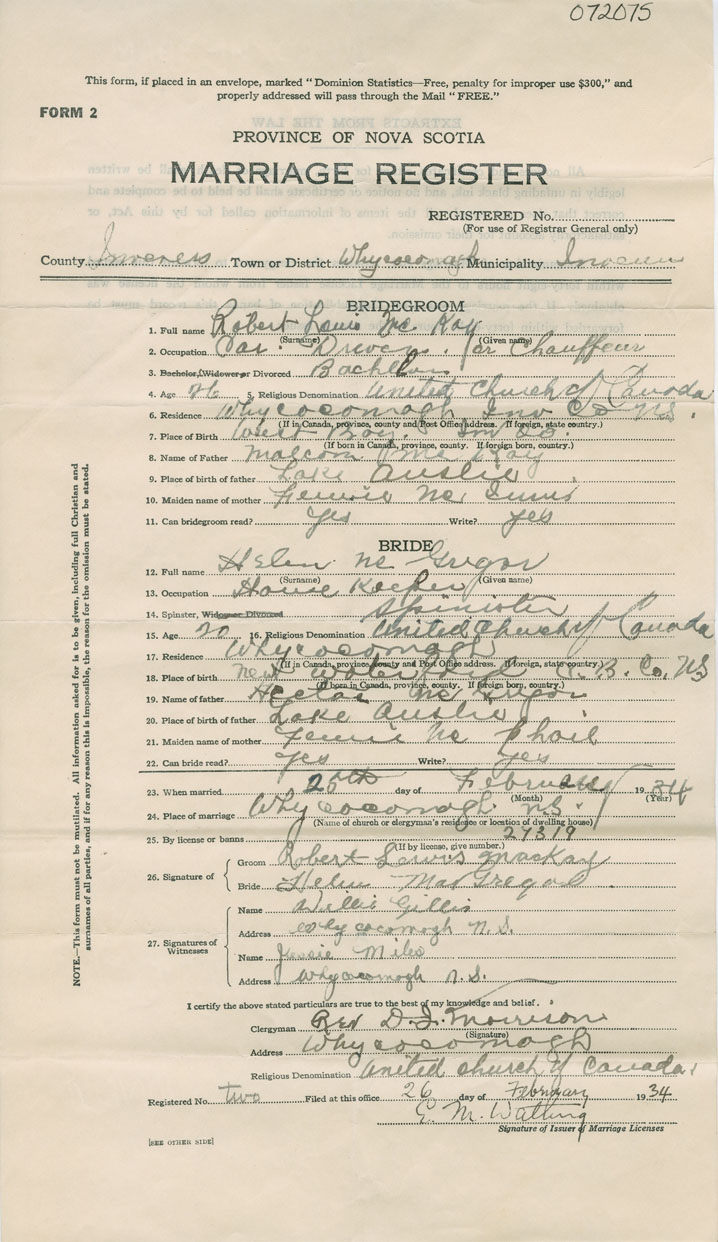 072075
This form, if placed in an envelope, marked "Dominion Statistics—Free, penalty for improper use $300," and
properly addressed will pass through the Mail "FREE."
FORM 2
PROVINCE OF NOVA SCOTIA
MARRIAGE REGISTER
REGISTERED No.
(For use of Registrar General only)
County Inverness Town or District Whycocomagh Municipality Inverness
BRIDEGROOM
1. Full name Robert Louis Mc Kay
(Surname) (Given name)
2. Occupation Car Driver. or Chauffeur
3. Bachelor, Widower or Divorced Bachelor
4. Age 26 5. Religious Denomination United Church of Canada
6. Residence Whycocomagh Inv Co N.S.
(If in Canada, province, county and Post Office address. If foreign, state country.)
7. Place of Birth West Bay Inv Co
(If born in Canada, province, county. If foreign born, country.)
8. Name of Father Malcom Mc Kay
9. Place of birth of father Lake Auslie
10. Maiden name of mother Mc
11. Can bridegroom read? Yes Write? yes
BRIDE
12. Full name Helen Mc Gregor
(Surname) (Given name)
13. Occupation House Keeper
14. Spinster, Widow or Divorced Spinister
15. Age 20 16. Religious Denomination United Church of Canada
17. Residence Whycocomagh
(If in Canada, province, county and Post Office address. If foreign, state country.)
18. Place of birth New Waterford C. B. Co, NS
(If born in Canada, province, county. If foreign born, country.)
19. Name of father Hector Mc
20. Place of birth of father Lake Auslie
21. Maiden name of mother Mc Phail
22. Can bride read? yes Write? yes
23. When married 26th day of February 1934
(Month) (Year)
24. Place of marriage Whycocomagh NS.
(Name of church or clergyman's residence or location of dwelling house)
25. By license or banns 27319
(If by license, give number.)
26. Signature of
Groom Robert Lewis MacKay
Bride Helen MacGregor
27. Signatures of Witnesses
Name Willie Gillis
Address Whycocomagh N.S.
Name Jessie Miles
Address Whycocomagh N.S.
I certify the above stated particulars are true to the best of my knowledge and belief.
Clergyman Rev D. J. Morrison
(Signature)
Address Whycocomagh
Religious Denomination United church of Canada
Registered No. two Filed at this office 26 day of February 1934
E. M. Watling
Signature of Issuer of Marriage Licenses
[SEE OTHER SIDE]
NOTE.—This form must not be mutilated. All information asked for is to be given, including full Christian and
surnames of all parties, and if for any reason this is impossible, the reason for the omission must be stated.